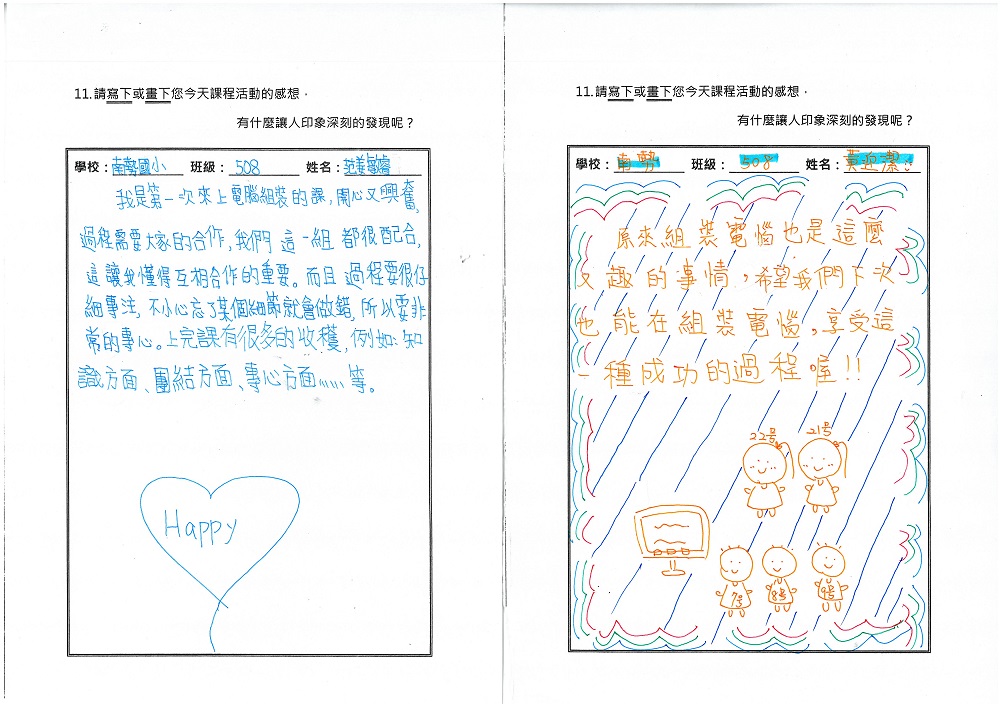 11.請寫下或畫下您今天課程活動的感想，
有什麼讓人印象深刻的發現呢？
學校：南勢國小 班級：508 姓名：范姜
我是第一次來上電腦組裝的課，開心又興奮，
過程需要大家的合作，我們這一組都很配合，
這讓我懂得互相合作的重要。而且過程要很仔
細專注，不小心忘了某個細節就會做錯，所以要非
常的專心。上完課有很多的收穫，例如：知
識方面、團結方面、專心方面……等。
Happy
11.請寫下或畫下您今天課程活動的感想，
有什麼讓人印象深刻的發現呢？
學校：南勢 班級：508 姓名：黃迎潔
原來組裝電腦也是這麼
又趣的事情，希望我們下次
也能在組裝電腦，享受這
一種成功的過程喔!!
22号 21号
7号 8号 9号